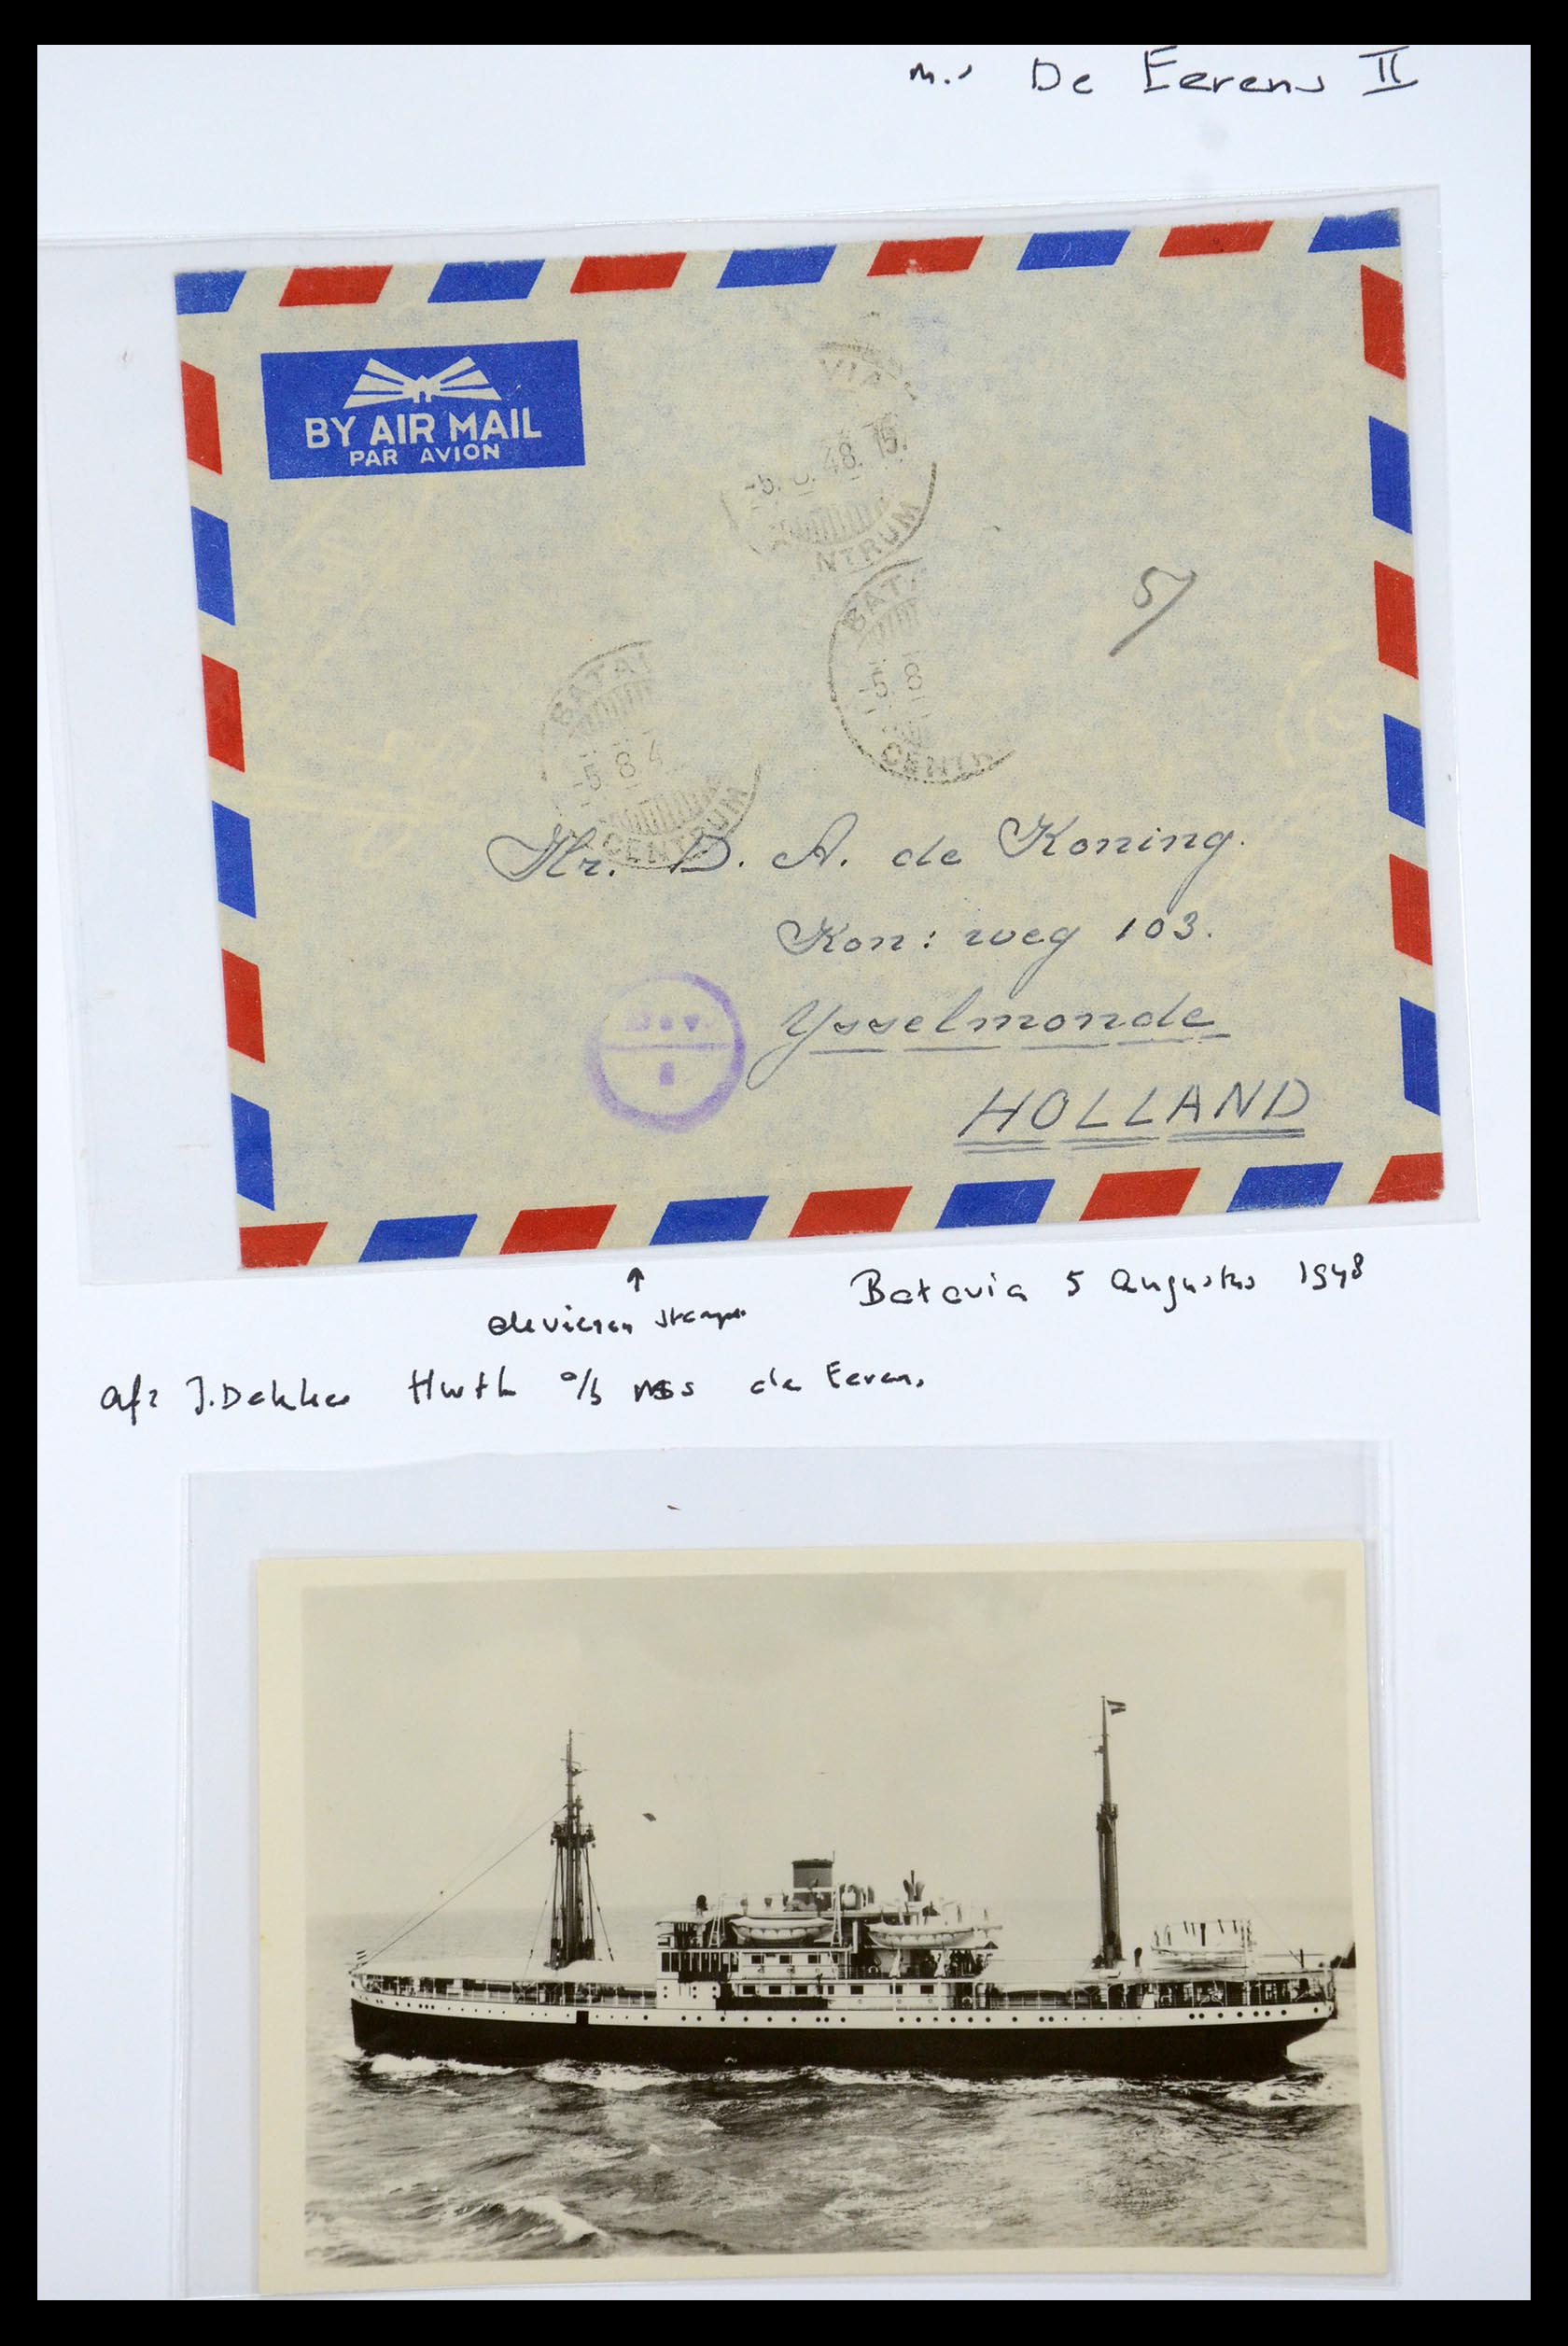 m.s De Eerens II
BY AIR MAIL
PAR AVION
VIA
-5. 48. 15.
NTRUM
BATA
-5 8
CENTR
BATAV
-5 8 4
CENTRUM
5/
Hr. D. A. de Koning.
Kon: weg 103.
Ysselmonde
HOLLAND
D e v.
↑
deviezen stempel
Batavia 5 Augustus 1948
afz J. Dekker Hwtk o/b ms de Eerens